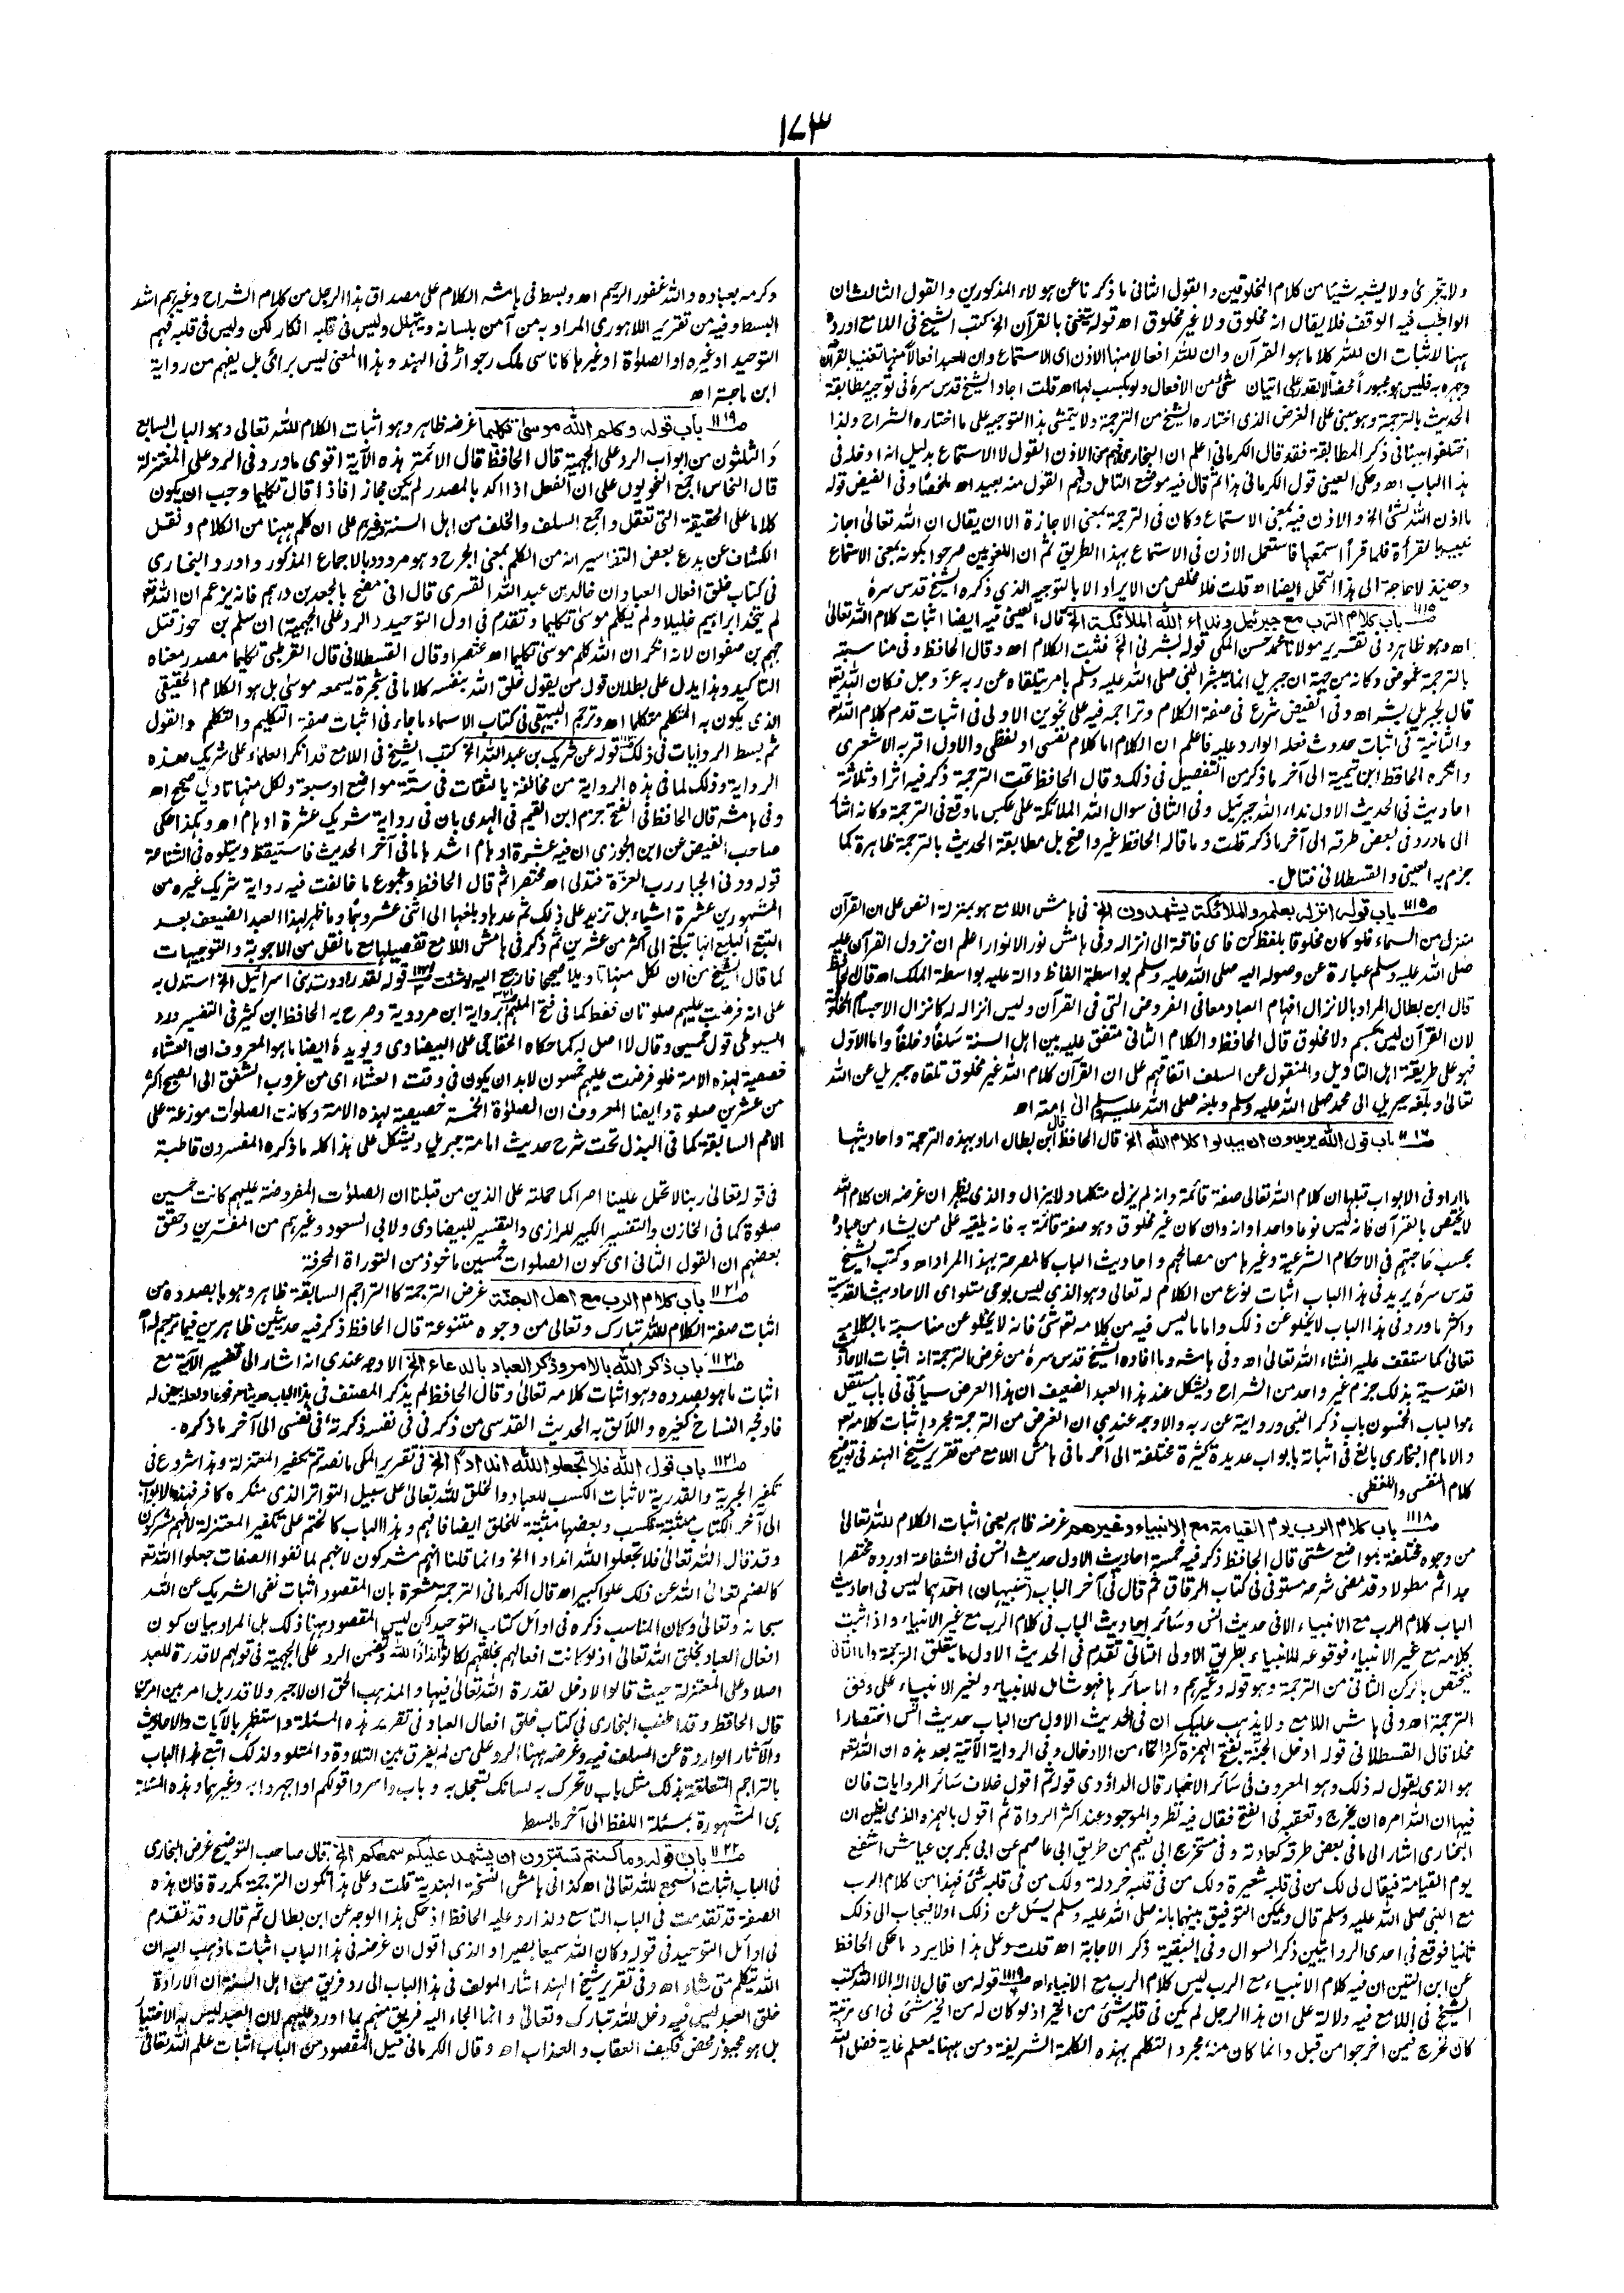 ١٧٣
ولا يتجزئ ولا يشبه شيئا من كلام المخلوقين والقول الثانى ما ذكرنا عن هؤلاء المذكورين والقول الثالث ان
الواجب فيه الوقف فلا يقال انه مخلوق ولا غير مخلوق اھ قوله يتغنى بالقرآن الخ كتب الشيخ فى اللامع اورده
ههنا لاثبات ان لله كلاما هو القرآن وان لله افعالا منها الاذن اى الاستماع وان للعبد افعالا منها تغنيه بالقرآن
وجهره به فليس هو مجبورا محضا لا يقدر على اتيان شئ من الافعال ولو بكسب لها اھ قلت اجاد الشيخ قدس سره فى توجيه مطابقة
الحديث بالترجمة وهو مبنى على الغرض الذى اختاره الشيخ من الترجمة ولا يتمشى هذا التوجيه على ما اختاره الشراح ولذا
اختلفوا ههنا فى ذكر المطابقة فقد قال الكرمانى اعلم ان البخارى فهم من الاذن القول لا الاستماع بدليل انه ادخله فى
هذا الباب اھ وحكى العينى قول الكرمانى هذا ثم قال فيه موضع التامل وفهم القول منه بعيد اھ ملخصا وفى الفيض قوله
ما اذن الله لشئ الخ والاذن فيه بمعنى الاستماع وكان فى الترجمة بمعنى الاجازة الا ان يقال ان الله تعالى اجاز
نبيه بالقرأة فلما قرأ استمعها فاستعمل الاذن فى الاستماع بهذا الطريق ثم ان اللغويين صرحوا بكونه بمعنى الاستماع
وحينئذ لا حاجة الى هذا التمحل ايضا اھ قلت فلا مخلص من الايراد الا بالتوجيه الذى ذكره الشيخ قدس سره
صـ ١١١٥ باب كلام الرب مع جبرئيل ونداء الله الملائكة الخ قال العينى فيه ايضا اثبات كلام الله تعالى
اھ وهو ظاهر وفى تقرير مولانا محمد حسن المكى قوله بشرنى الخ فثبت الكلام اھ وقال الحافظ وفى مناسبته
بالترجمة غموض وكانه من جهة ان جبريل انما يبشر النبى صلى الله عليه وسلم بامر يتلقاه عن ربه عز وجل فكان الله تعالى
قال لجبريل بشر اھ وفى الفيض شرع فى صفة الكلام وتراجمه فيه على نحوين الاولى فى اثبات قدم كلام الله تعالى
والثانية فى اثبات حدوث فعله الوارد عليه فاعلم ان الكلام اما كلام نفسى او لفظى والاول اقر به الاشعرى
وانكره الحافظ ابن تيمية الى آخر ما ذكر من التفصيل فى ذلك وقال الحافظ تحت الترجمة ذكر فيه اثرا وثلاثة
احاديث فى الحديث الاول نداء الله جبرئيل وفى الثانى سوال الله الملائكة على عكس ما وقع فى الترجمة وكانه اشار
الى ما ورد فى بعض طرقه الى آخر ما ذكر قلت وما قاله الحافظ غير واضح بل مطابقة الحديث بالترجمة ظاهرة كما
جزم به العينى والقسطلانى فتامل۔
صـ ١١١٥ باب قوله انزله بعلمه والملائكة يشهدون الخ فى هامش اللامع هو بمنزلة النص على ان القرآن
منزل من السماء فلو كان مخلوقا بلفظ كن فاى فاقة الى انزاله وفى هامش نور الانوار اعلم ان نزول القرآن عليه
صلى الله عليه وسلم عبارة عن وصوله اليه صلى الله عليه وسلم بواسطة الفاظ دالة عليه بواسطة الملك اھ قال الحافظ
قال ابن بطال المراد بالانزال افهام العباد معانى الفروض التى فى القرآن وليس انزاله له كانزال الاجسام المخلوقة
لان القرآن ليس بجسم ولا مخلوق قال الحافظ والكلام الثانى متفق عليه بين اهل السنة سلفا وخلفا واما الاول
فهو على طريقة اهل التاويل والمنقول عن السلف اتفاقهم على ان القرآن كلام الله غير مخلوق تلقاه جبريل عن الله
تعالى وبلغه جبريل الى محمد صلى الله عليه وسلم وبلغه صلى الله عليه وسلم الى امته اھ
صـ ١١١٦ باب قول الله يريدون ان يبدلوا كلام الله الخ قال الحافظ قال ابن بطال اراد بهذه الترجمة واحاديثها
ما اراد فى الابواب قبلها ان كلام الله تعالى صفة قائمة وانه لم يزل متكلما ولا يزال والذى يظهر ان غرضه ان كلام الله
لا يختص بالقرآن فانه ليس نوعا واحدا وانه وان كان غير مخلوق وهو صفة قائمة به فانه يلقيه على من يشاء من عباده
بحسب حاجتهم فى الاحكام الشرعية وغيرها من مصالحهم واحاديث الباب كالمصرحة بهذا المراد اھ وكتب الشيخ
قدس سره يريد فى هذا الباب اثبات نوع من الكلام له تعالى وهو الذى ليس بوحى متلو اى الاحاديث القدسية
واكثر ما ورد فى هذا الباب لا يخلو عن ذلك واما ما ليس فيه من كلامه تعالى شئ فانه لا يخلو عن مناسبة بالكلام
تعالى كما ستقف عليه انشاء الله تعالى اھ وفى هامشه وما افاده الشيخ قدس سره من غرض الترجمة انه اثبات الاحاديث
القدسية بذلك جزم غير واحد من الشراح ويشكل عند هذا العبد الضعيف ان هذا الغرض سيأتى فى باب مستقل
هو الباب الخمسون باب ذكر النبى وروايته عن ربه والاوجه عندى ان الغرض من الترجمة مجرد اثبات كلامه تعالى
والامام البخارى بالغ فى اثباته بابواب عديدة كثيرة مختلفة الى آخر ما فى هامش اللامع من تقرير شيخ الهند فى توضيح
كلام النفسى واللفظى۔
صـ ١١١٨ باب كلام الرب يوم القيامة مع الانبياء وغيرهم غرضه ظاهر يعنى اثبات الكلام لله تعالى
من وجوه مختلفة بمواضع شتى قال الحافظ ذكر فيه خمسة احاديث الاول حديث انس فى الشفاعة اورده مختصرا
جدا ثم مطولا وقد مضى شرحه مستوفى فى كتاب الرقاق ثم قال فى آخر الباب (تنبيهان) احدهما ليس فى احاديث
الباب كلام الرب مع الانبياء الا فى حديث انس وسائر احاديث الباب فى كلام الرب مع غير الانبياء واذا ثبت
كلامه مع غير الانبياء فوقوعه للانبياء بطريق الاولى الثانى تقدم فى الحديث الاول ما يتعلق بالترجمة واما الثانى
فيختص بالركن الثانى من الترجمة وهو قوله وغيرهم واما سائرها فهو شامل للانبياء ولغير الانبياء على وفق
الترجمة اھ وفى هامش اللامع ولا يذهب عليك ان فى الحديث الاول من الباب حديث انس اختصارا
مخلا قال القسطلانى قوله ادخل الجنة بفتح الهمزة وكسر الخاء من الادخال وفى الرواية الآتية بعد هذه ان الله تعالى
هو الذى يقول له ذلك وهو المعروف فى سائر الاخبار قال الداؤدى قوله ثم اقول خلاف سائر الروايات فان
فيها ان الله امره ان يخرج وتعقبه فى الفتح فقال فيه نظر والموجود عند اكثر الرواة ثم اقول بالهمزة والذى يظن ان
البخارى اشار الى ما فى بعض طرقه كعادته وفى مستخرج ابى نعيم من طريق ابى عاصم عن ابى بكر بن عياش اشفع
يوم القيامة فيقال لى لك من فى قلبه شعيرة ولك من فى قلبه خردلة ولك من فى قلبه شئ فهذا من كلام الرب
مع النبى صلى الله عليه وسلم قال ويمكن التوفيق بينهما بانه صلى الله عليه وسلم يسئل عن ذلك اولا فيجاب الى ذلك
ثانيا فوقع فى احدى الروايتين ذكر السوال وفى البقية ذكر الاجابة اھ قلت وعلى هذا فلا يرد ما حكى الحافظ
عن ابن التين ان فيه كلام الانبياء مع الرب ليس كلام الرب مع الانبياء اھ صـ ١١١٩ قوله من قال لا اله الا الله كتب
الشيخ فى اللامع فيه دلالة على ان هذا الرجل لم يكن فى قلبه شئ من الخير اذ لو كان له من الخير شئ فى اى مرتبة
كان لخرج فيمن اخرجوا من قبل وانما كان منه مجرد التكلم بهذه الكلمة الشريفة ومن ههنا يعلم غاية فضل الله
وكرمه بعباده والله غفور الرحيم اھ وبسط فى هامشه الكلام على مصداق هذا الرجل من كلام الشراح وغيرهم اشد
البسط وفيه من تقرير اللاهورى المراد به من آمن بلسانه ويتهلل وليس فى قلبه انكار لكن وليس فى قلبه فهم
التوحيد او غيره او الصلوة او غيرها كاناسى ملك رجواڑ فى الهند وهذا المعنى ليس برائى بل يفهم من رواية
ابن ماجة اھ
صـ ١١١٩ باب قوله وكلم الله موسى تكليما غرضه ظاهر وهو اثبات الكلام لله تعالى وهو الباب السابع
والثلثون من ابواب الرد على الجهمية قال الحافظ قال الائمة هذه الآية اقوى ما ورد فى الرد على المعتزلة
قال النحاس اجمع النحويون على ان الفعل اذا اكد بالمصدر لم يكن مجازا فاذا قال تكليما وجب ان يكون
كلاما على الحقيقة التى تعقل واجمع السلف والخلف من اهل السنة وغيرهم على ان كلم ههنا من الكلام ونقل
الكشاف عن بدع بعض التفاسير انه من الكلم بمعنى الجرح وهو مردود بالاجماع المذكور واورد البخارى
فى كتاب خلق افعال العباد ان خالد بن عبد الله القسرى قال انى مضح بالجعد بن درهم فانه يزعم ان الله تعالى
لم يتخذ ابراهيم خليلا ولم يكلم موسى تكليما وتقدم فى اول التوحيد (الرد على الجهمية) ان سلم بن احوز قتل
جهم بن صفوان لانه انكر ان الله كلم موسى تكليما اھ مختصرا وقال القسطلانى قال القرطبى تكليما مصدر معناه
التاكيد وهذا يدل على بطلان قول من يقول خلق الله بنفسه كلاما فى شجرة يسمعه موسى بل هو الكلام الحقيقى
الذى يكون به المتكلم متكلما اھ وترجم البيهقى فى كتاب الاسماء ما جاء فى اثبات صفة التكليم والتكلم والقول
ثم بسط الروايات فى ذلك قوله عن شريك بن عبد الله الخ كتب الشيخ فى اللامع قد انكر العلماء على شريك هذه
الرواية وذلك لما فى هذه الرواية من مخالفة بالثقات فى ستة مواضع او سبعة ولكل منها تاويل صحيح اھ
وفى هامشه قال الحافظ فى الفتح جزم ابن القيم فى الهدى بان فى رواية شريك عشرة اوهام اھ وهكذا حكى
صاحب الفيض عن ابن الجوزى ان فيه عشرة اوهام اشدها ما فى آخر الحديث فاستيقظ ويتلوه فى الشناعة
قوله ودنى الجبار رب العزة فتدلى اھ مختصرا ثم قال الحافظ ومجموع ما خالفت فيه رواية شريك غيره من
المشهورين عشرة اشياء بل تزيد على ذلك ثم عدها وبلغها الى اثنى عشر وهما وما ظهر لهذا العبد الضعيف بعد
التتبع البليغ انها تبلغ الى اكثر من عشرين ثم ذكر فى هامش اللامع تفصيلها مع ما نقل من الاجوبة والتوجيهات
كما قال الشيخ من ان لكل منها تاويلا صحيحا فارجع اليه لو شئت صـ قوله لقد راودت بنى اسرائيل الخ استدل به
على انه فرضت عليهم صلوتان فقط كما فى فتح الملهم برواية ابن مردوية وصرح به الحافظ ابن كثير فى التفسير ورد
السيوطى قول خمسين وقال لا اصل له كما حكاه الخفاجى على البيضاوى ويويده ايضا ما هو المعروف ان العشاء
خصيصة لهذه الامة فلو فرضت عليهم خمسون لابد ان يكون فى وقت العشاء اى من غروب الشفق الى الصبح اكثر
من عشرين صلوة وايضا المعروف ان الصلوة الخمسة خصيصة لهذه الامة وكانت الصلوات موزعة على
الامم السابقة كما فى البذل تحت شرح حديث امامة جبريل ويشكل على هذا كله ما ذكره المفسرون قاطبة
فى قوله تعالى ربنا لا تحمل علينا اصرا كما حملته على الذين من قبلنا ان الصلوات المفروضة عليهم كانت خمسين
صلوة كما فى الخازن والتفسير الكبير للرازى والتفسير للبيضاوى ولابى السعود وغيرهم من المفسرين وحقق
بعضهم ان القول الثانى اى كون الصلوات خمسين ماخوذ من التوراة المحرفة
صـ ١١٢١ باب كلام الرب مع اهل الجنة غرض الترجمة كالتراجم السابقة ظاهر وهو ما بصدده من
اثبات صفة الكلام لله تبارك وتعالى من وجوه متنوعة قال الحافظ ذكر فيه حديثين ظاهرين فيما ترجم له اھ
صـ ١١٢١ باب ذكر الله بالامر وذكر العباد بالدعاء الخ الاوجه عندى انه اشار الى تفسير الآية مع
اثبات ما هو بصدده وهو اثبات كلامه تعالى وقال الحافظ لم يذكر المصنف فى هذا الباب حديثا مرفوعا ولعله بيض له
فادمجه النساخ كغيره واللائق به الحديث القدسى من ذكرنى فى نفسه ذكرته فى نفسى الى آخر ما ذكره۔
صـ ١١٢١ باب قول الله فلا تجعلوا لله اندادا الخ فى تقرير المكى ما نصه تم تكفير المعتزلة وهذا شروع فى
تكفير الجبرية والقدرية لاثبات الكسب للعباد والخلق لله تعالى على سبيل التواتر الذى منكره كافر فهذه الابواب
الى آخر الكتاب مثبتة للكسب وبعضها مثبتة للخلق ايضا فافهم وهذا الباب كالختم على تكفير المعتزلة لانهم مشركون
وقد قال الله تعالى فلا تجعلوا لله اندادا الخ وانما قلنا انهم مشركون لانهم لما نفوا الصفات جعلوا الله تعالى
كالصنم تعالى الله عن ذلك علوا كبيرا اھ قال الكرمانى الترجمة مشعرة بان المقصود اثبات نفى الشريك عن الله
سبحانه وتعالى وكان المناسب ذكره فى اوائل كتاب التوحيد لكن ليس المقصود ههنا ذلك بل المراد بيان كون
افعال العباد بخلق الله تعالى اذ لو كانت افعالهم بخلقهم لكانوا اندادا لله وتضمن الرد على الجهمية فى قولهم لا قدرة للعبد
اصلا وعلى المعتزلة حيث قالوا لا دخل لقدرة الله تعالى فيها والمذهب الحق ان لا جبر ولا قدر بل امر بين امرين
قال الحافظ وقد اطنب البخارى فى كتاب خلق افعال العباد فى تقرير هذه المسئلة واستظهر بالآيات والاحاديث
والآثار الواردة عن السلف فيه وغرضه ههنا الرد على من لم يفرق بين التلاوة والمتلو ولذلك اتبع هذا الباب
بالتراجم المتعلقة بذلك مثل باب لا تحرك به لسانك لتعجل به وباب واسروا قولكم او اجهروا به وغيرهما وهذه المسئلة
هى المشهورة بمسئلة اللفظ الى آخر ما بسط
صـ ١١٢٢ باب قوله وما كنتم تستترون ان يشهد عليكم سمعكم الخ قال صاحب التوضيح غرض البخارى
فى الباب اثبات السمع لله تعالى اھ كذا فى هامش النسخة الهندية قلت وعلى هذا تكون الترجمة مكررة فان هذه
الصفة قد تقدمت فى الباب التاسع ولذا رد عليه الحافظ اذ حكى هذا الوجه عن ابن بطال ثم قال وقد تقدم
فى اوائل التوحيد فى قوله وكان الله سميعا بصيرا والذى اقول ان غرضه فى هذا الباب اثبات ما ذهب اليه ان
الله يتكلم متى شاء اھ وفى تقرير شيخ الهند اشار المولف فى هذا الباب الى رد فريق من اهل السنة ان الارادة
خلق العبد ليس فيه دخل لله تبارك وتعالى وانما الجاء اليه فريق منهم بما اورد عليهم لان العبد ليس به الاختيار
بل هو مجبور محض فكيف العقاب والعذاب اھ وقال الكرمانى قيل المقصود من الباب اثبات علم الله تعالى